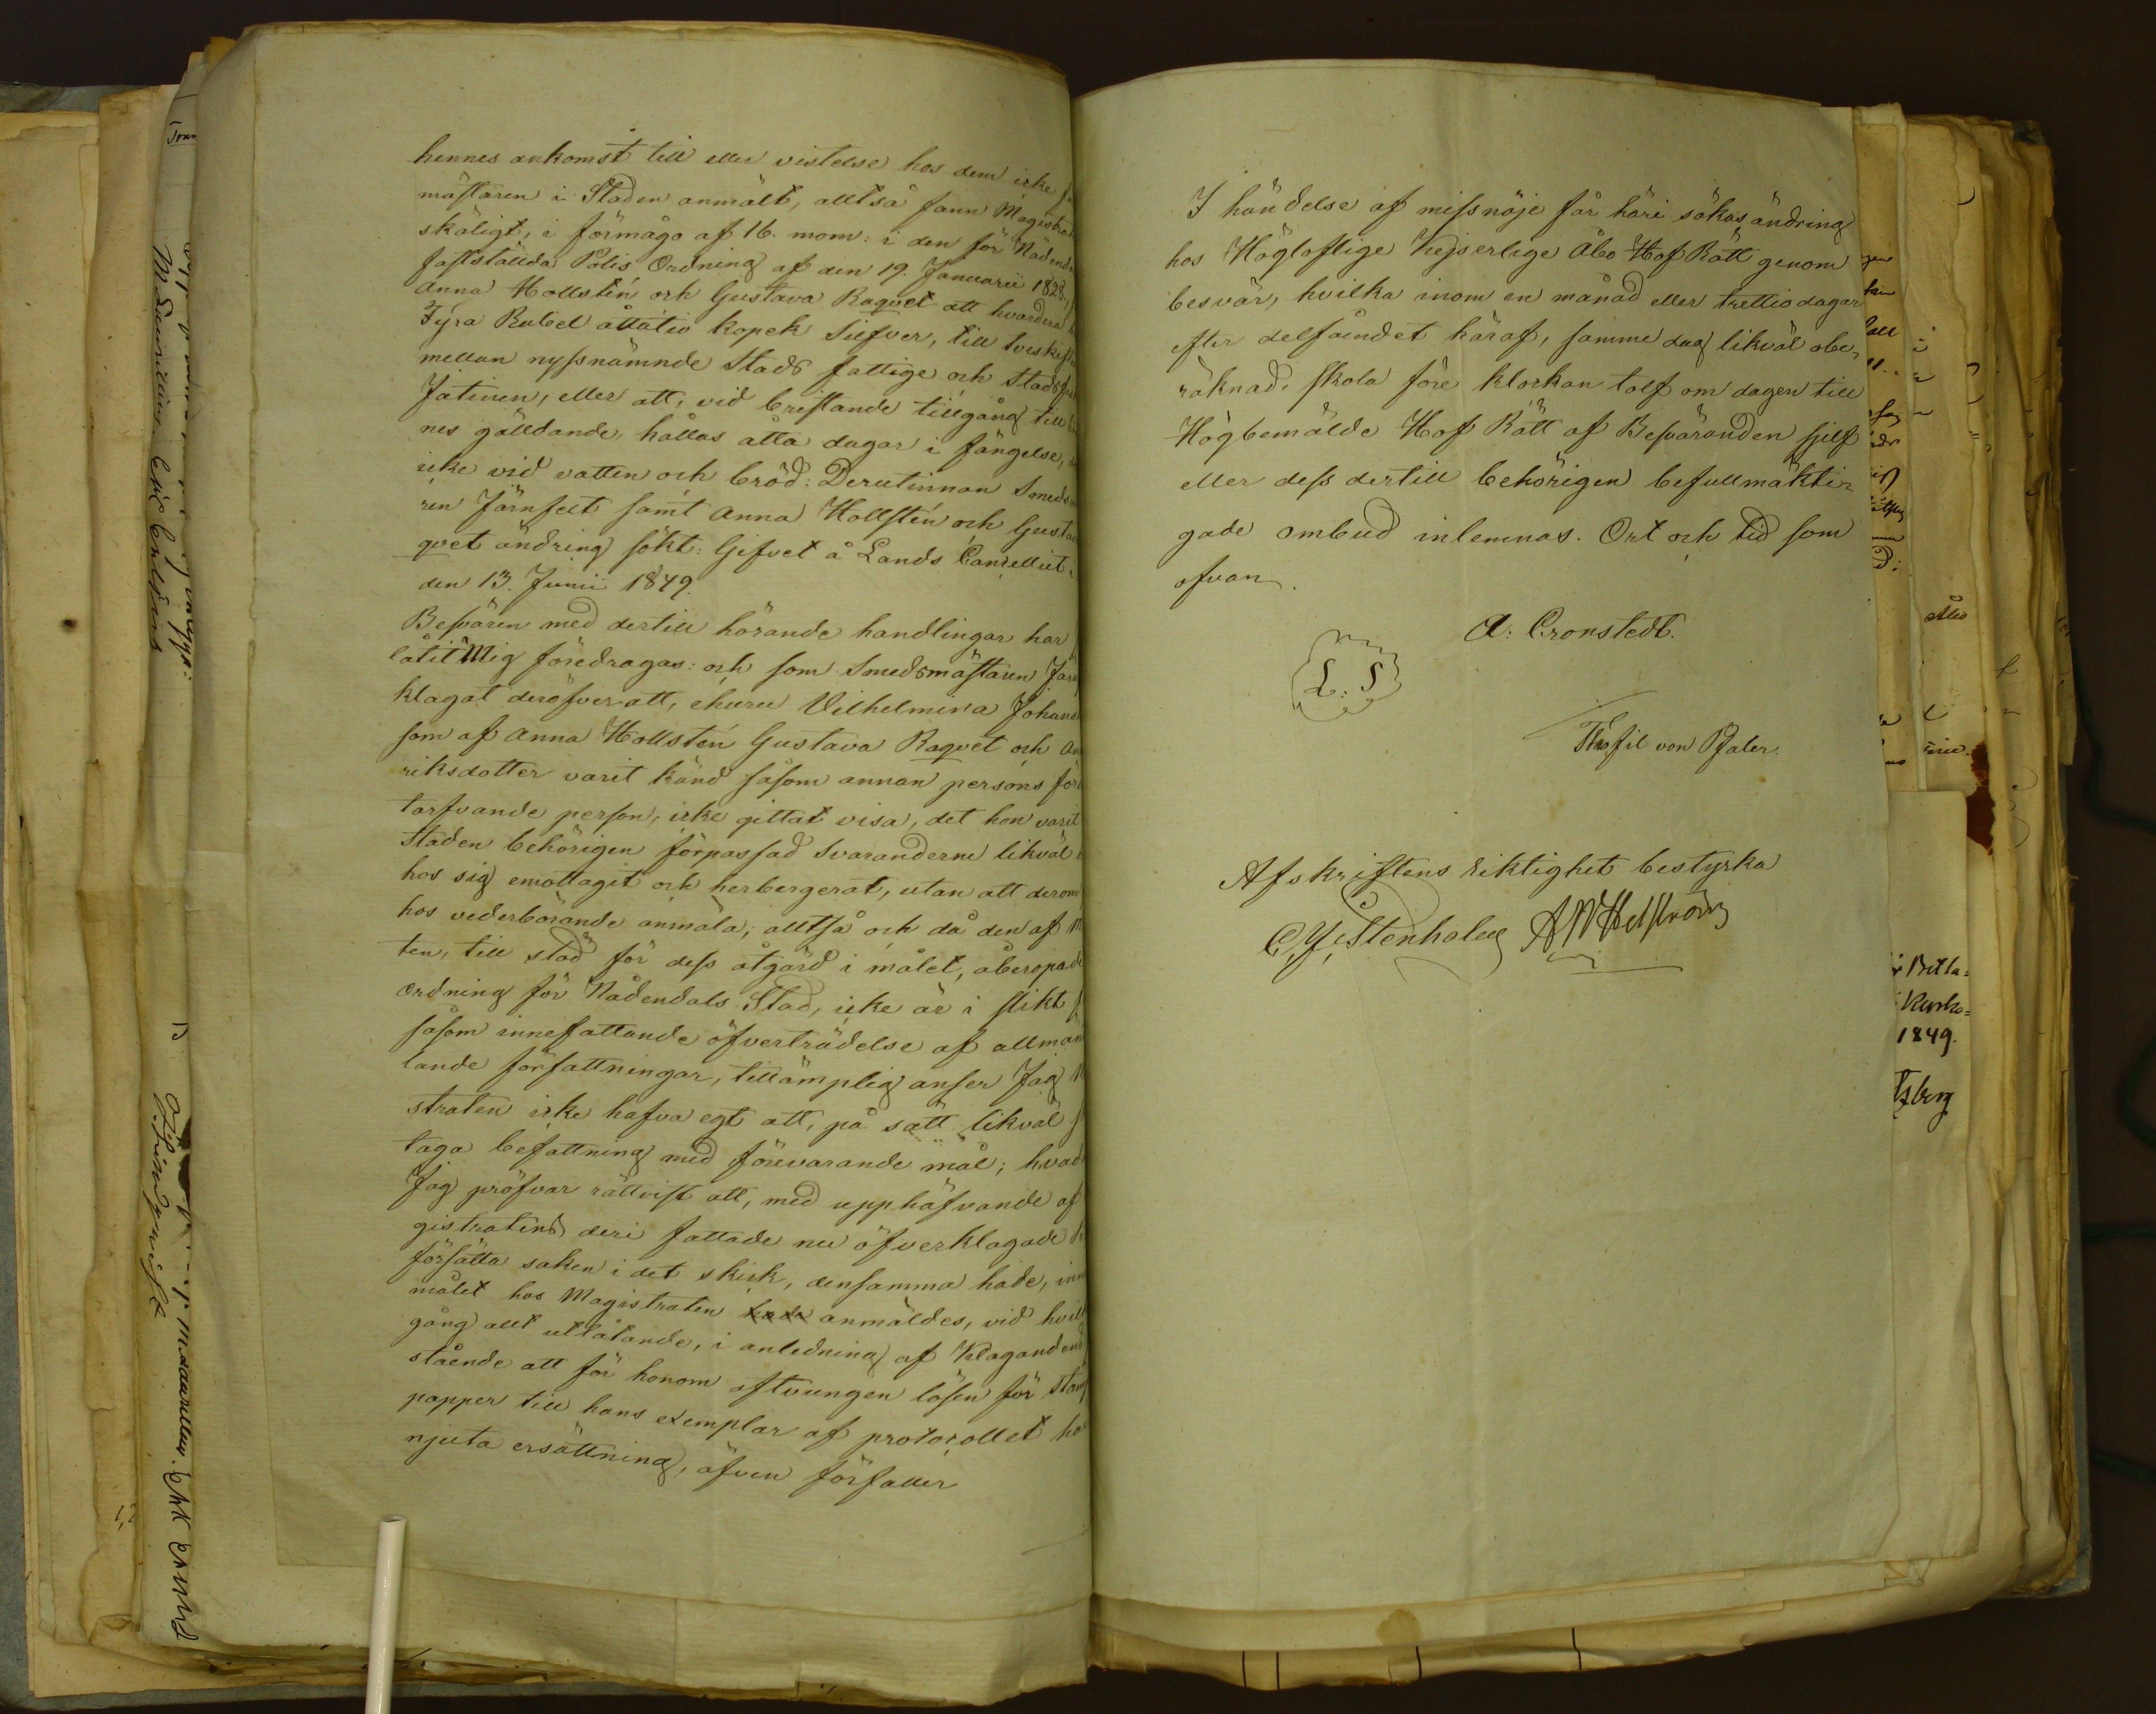 hennes ankomst till eller vistelse hos dem icke
mästaren i Staden anmält, alltså fann Magistra
skäligt, i förmågo af 16. mom: i den för Nådenda
fastställda Polis Ordning af den 19. Januarii 1828,
Anna Hollstén och Gustava Raqvet att hvardera
Fyra Rubel åttatio kopek Silfver, till tveskifte
mellan nyssnämnde Stads fattige och Stads
Jätinen, eller att, vid bristande tillgång till
nes gälldande, hållas åtta dagar i fängelse,
icke vid vatten och bröd: Derutinnan Smeds
ren Järnfelt samt Anna Hollstén och Gusta
qvet ändring sökt: Gifvet å Lands Cancelliet i
den 13. Junii 1849.
Besvären med dertill hörande handlingar har
låtit Mig föredragas: och som Smedsmästaren Järn
klagat deröfver att, ehuru Vilhelmina Johans
som af Anna Hollstén Gustava Raqvet och An
riksdotter varit känd såsom annan persons för
tarfvande person, icke gittat visa, det hon varit
Staden behörigen förpassad Svaranderne likväl
hos sig emottagit och herbergerat, utan att derom
hos vederbörande anmäla; alltså och då den af M
ten, till stöd för dess åtgärd i målet, åberopade
ordning för Nådendals Stad, icke är i slikt f
såsom innefattande öfverträdelse af allmän
lande författningar, tillämplig anser Jag M
straten icke hafva egt att, på sätt likväl s
taga befattning med förevarande mål; hvad
Jag pröfvar rättvist att, med upphäfvande af
gistratens deri fattade nu öfverklagade B
försätta saken i det skick, densamma hade, inn
målet hos Magistraten hade anmäldes, vid hvil
gång allt utlåtande, i anledning af Klagandens
stående att för honom aftvungen lösen för Stäm
papper till hans exemplar af protocollet ha
njuta ersättning, äfven förfaller
I händelse af missnöje får häri sökas ändring
hos Högloflige Kejserlige Åbo Hof Rätt genom
besvär, hvilka inom en månad eller trettio dagar
efter delfåendet häraf, samme dag likväl obe-
räknad, skola före klockan tolf om dagen till
Högbemälde Hof Rätt af Besväranden sjelf
eller dess dertill behörigen befullmäkti-
gade ombud inlemnas. Ort och tid som
ofvan.
A: Cronstedt.
L. S
Thiofil von Pfaler.
Afskriftens riktighet bestyrka
C. Y. Stenholm A W Hellström
1849.